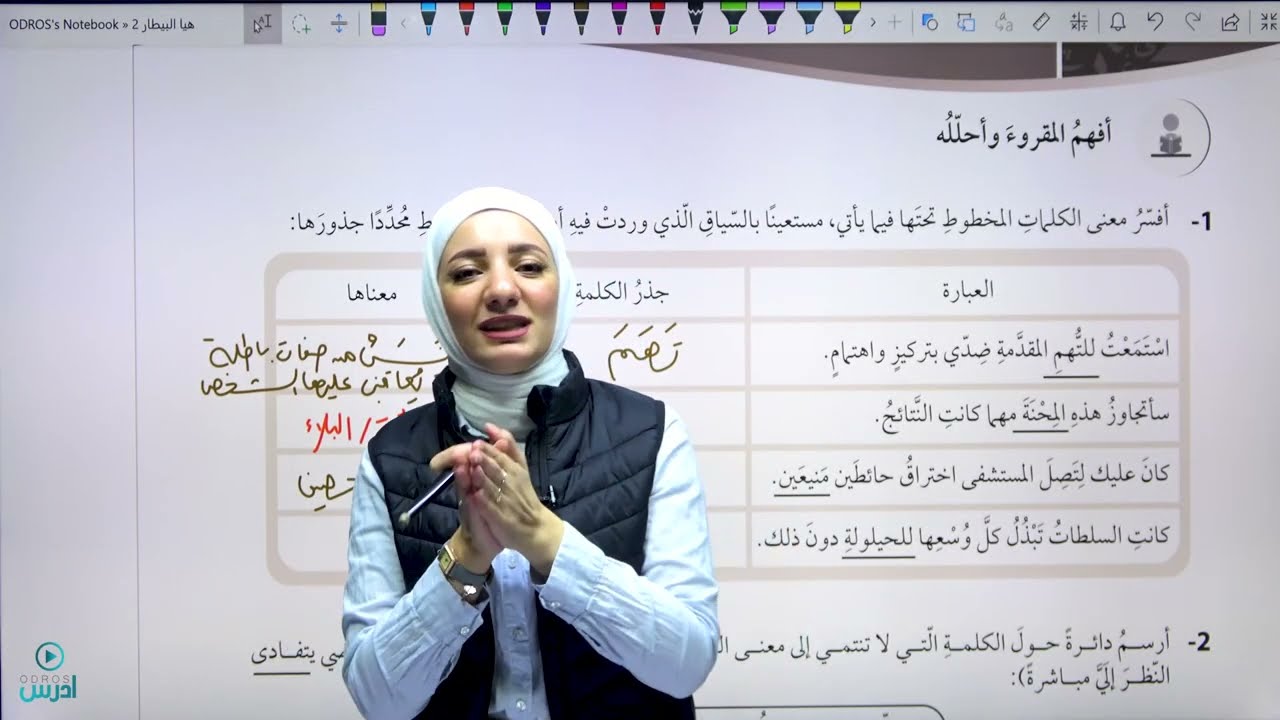 ODROS's Notebook » هيا البيطار 2
أفهمُ المقروءَ وأحلّلُه
1- أفسّرُ معنى الكلماتِ المخطوطِ تحتَها فيما يأتي، مستعينًا بالسّياقِ الّذي وردتْ فيهِ مُحدِّدًا جذورَها:
العبارة جذرُ الكلمةِ معناها
اسْتَمَعْتُ للتُّهمِ المقدَّمةِ ضِدّي بتركيزٍ واهتمامٍ. تَهَمَ من صفات باطلة
يُعاقب عليها الشخص
سأتجاوزُ هذهِ المِحْنَةَ مهما كانتِ النَّتائجُ. / البلاء
كانَ عليك لِتَصِلَ المستشفى اختراقُ حائطَين مَنيعَين. حصين
كانتِ السلطاتُ تَبْذُلُ كلَّ وُسْعِها للحيلولةِ دونَ ذلك.
2- أرسمُ دائرةً حولَ الكلمةِ الّتي لا تنتمي إلى معنى يتفادى
النّظرَ إليَّ مباشرةً):
ODROS
ادرس